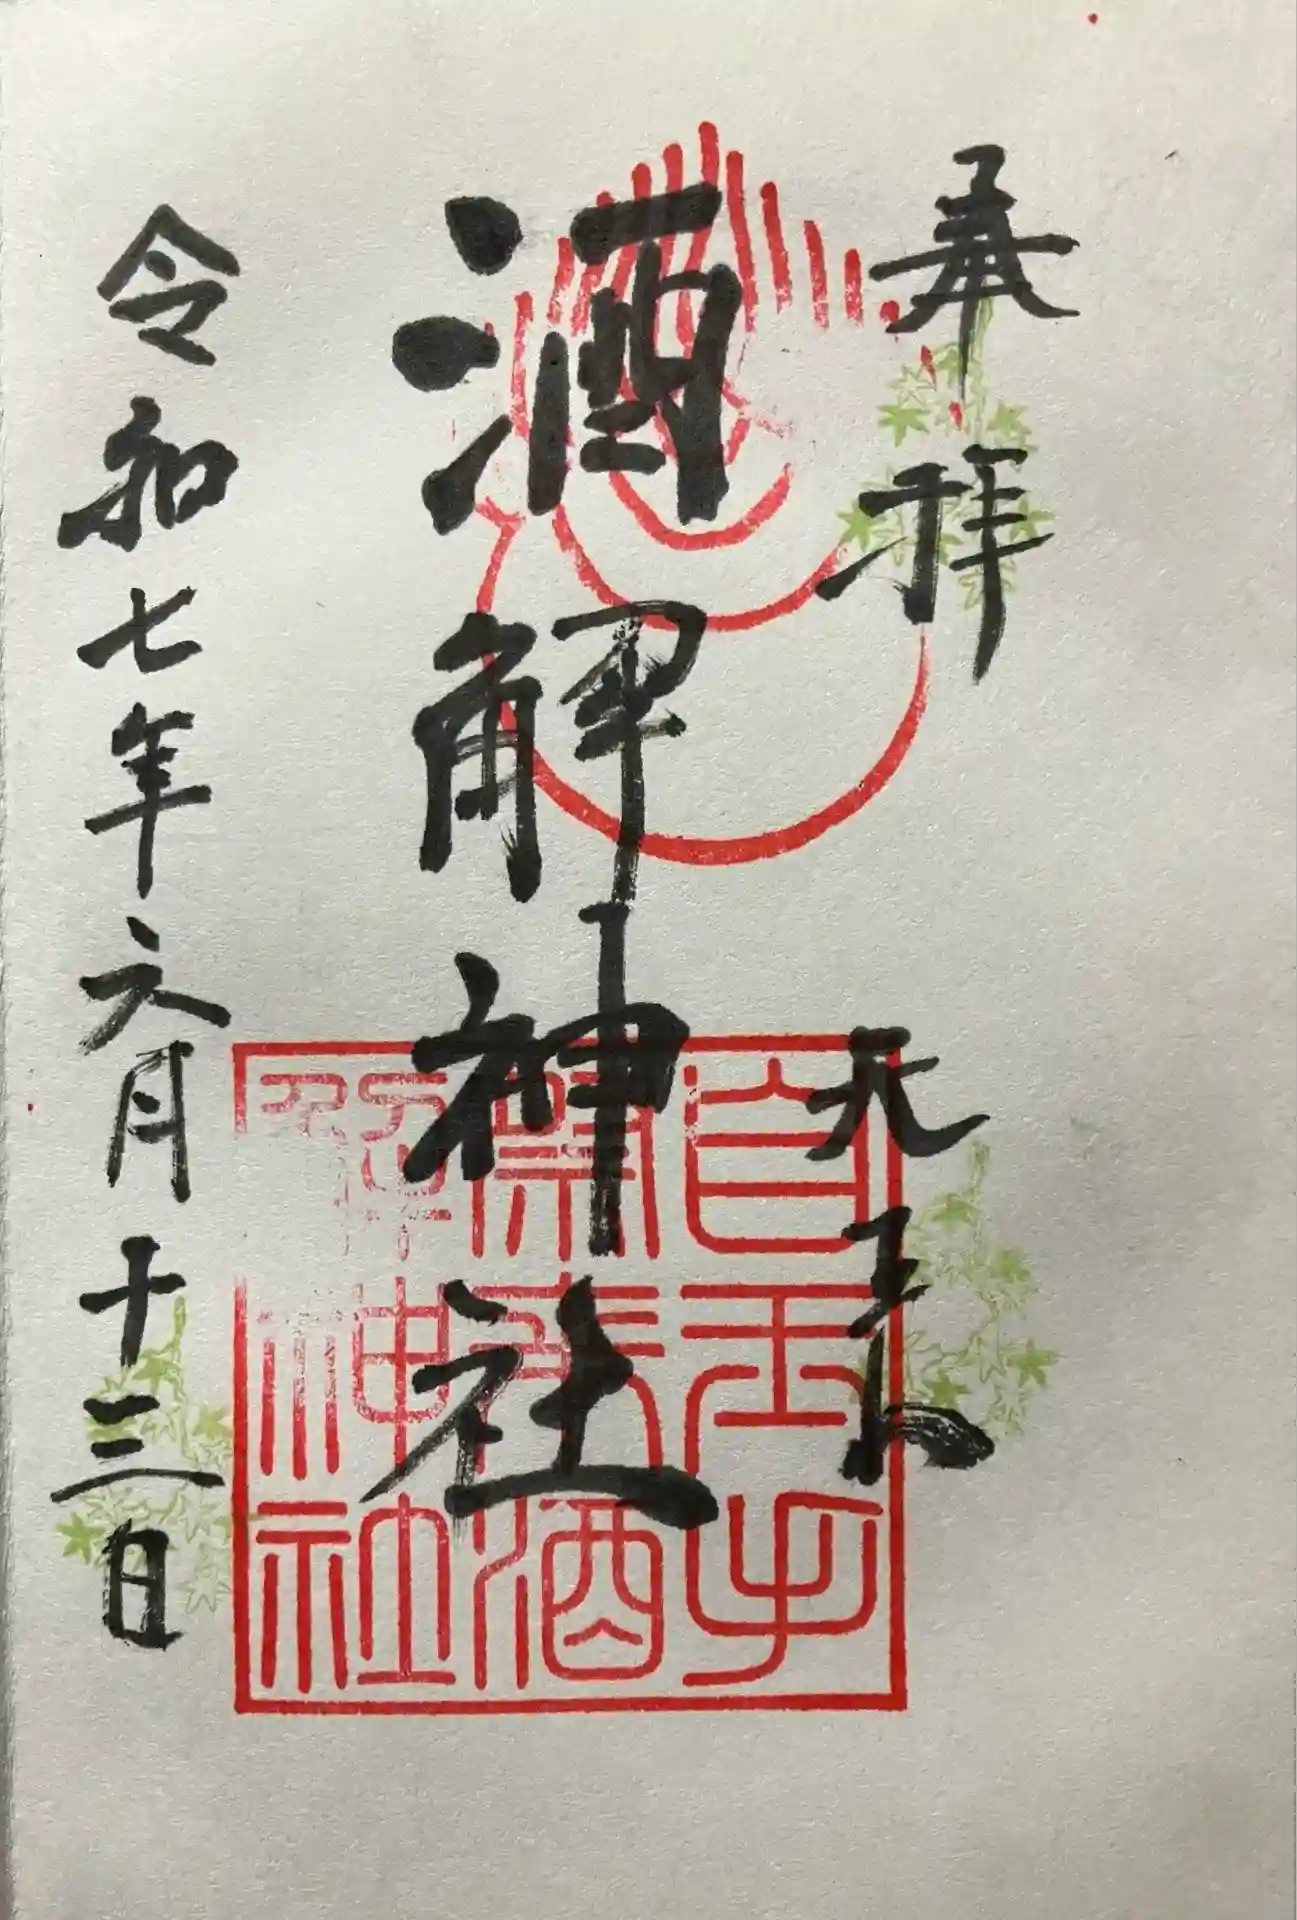 奉拝 天王山
酒解神社
令和七年六月十三日
自玉手
祭來酒
解神社